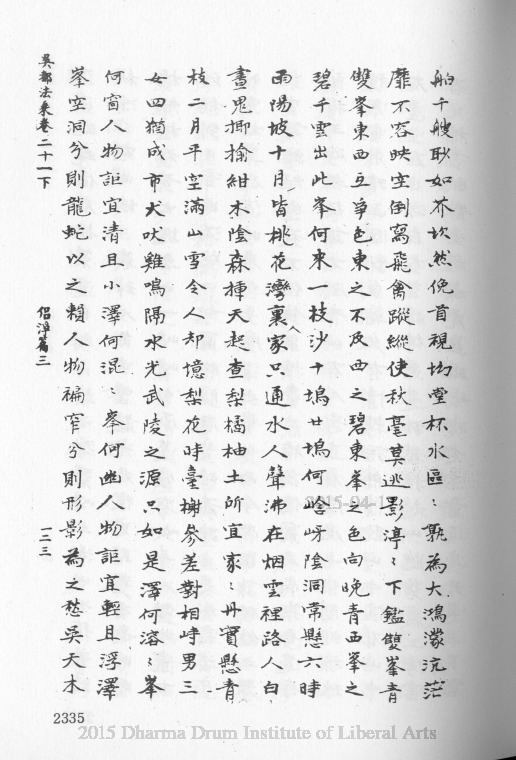 舶千艘耿如芥坎然俛首視坳堂杯水區〻孰為大鴻濛沆茫
靡不容映空倒寫飛禽蹤縱使秋毫莫逃影渟〻下鑑雙峯青
雙峯東西互爭色東之不及西之碧東峯之色向晚青西峯之
碧千雲出此峯何來一枝沙十塢廿塢何崄岈陰洞常懸六時
雨陽坡十月皆桃花灣裏家家只通水人聲沸在烟雲裡路人白
晝鬼揶揄紺木陰森揷天起查梨橘柚土所宜家〻丹實懸青
枝二月平空滿山雪令人却憶梨花時臺榭參差對相峙男三
女四猶成市犬吠雞鳴隔水光武陵之源只如是澤何溶〻峯
何窅人物詎宜清且小澤何混〻峯何幽人物詎宜輕且浮澤
峯空洞兮則龍蛇以之賴人物褊窄兮則形影為之愁吳天木
吳都法乘卷二十一下
侣淨篇三
一二三
2335
2015-04-1
2015 Dharma Drum Institute of Liberal Arts